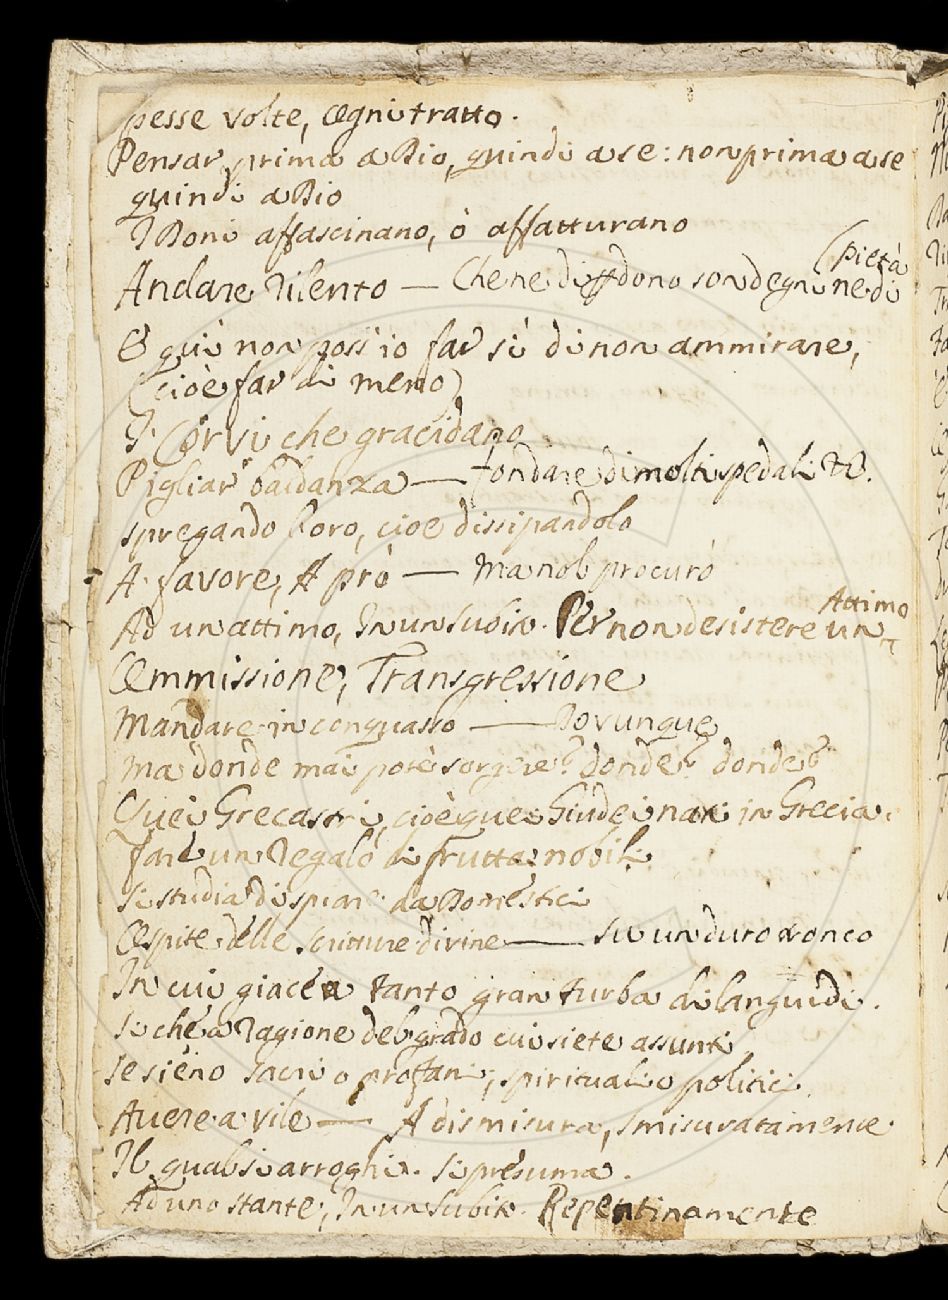 spesse volte, Ogni tratto.
Pensar prima a Dio, quindi a se: non prima a se
quindi a Dio
I Boni affascinano, ò affatturano
(pietà
Andare rilento — Che ne diffidono son degni ne di
E qui non poss' io far sì di non ammirare,
(cioè far di meno)
I Corvi che gracidano
Pigliar baldanza — fondare di molti spedali &c.
spregando l'oro, cioe dissipandolo
A favore, A prò — Ma nol procurò
Attimo
Ad un attimo, In un subito. Per non desistere un
Ommissione, Transgressione
Mandare in conquasso — Dovunque
Ma donde mai potè sorgere? donde? donde?
Quei Grecastri, cioè quei Giudei nati in Grecia.
fare un regalo di frutta nobili
Si studia di spiare da Domestici
Ospite delle scritture divine — su un duro tronco
In cui giacea tanto gran turba di languidi.
Si che a ragione del grado cui siete assunti
Se sieno sacri o profani, spirituali o politici
Avere a vile — A dismisura, smisuratamente.
Il qual si arroghi. si presuma.
Ad uno stante, In un subito. Repentinamente